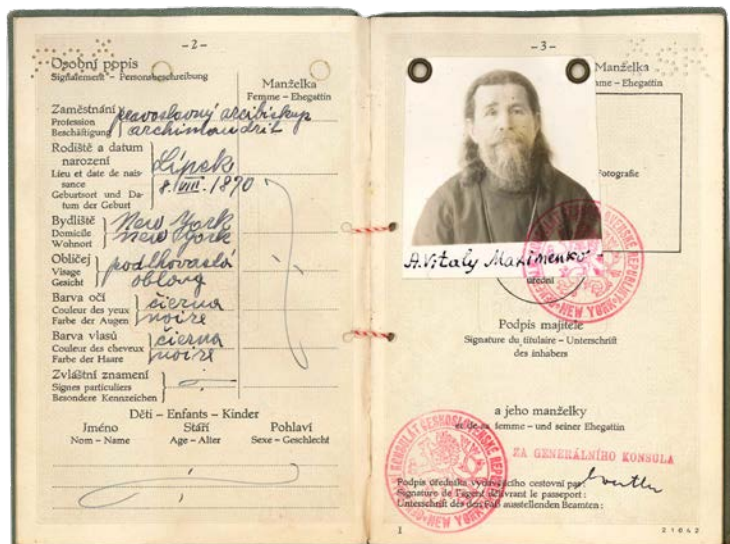 -2-
Osobní popis
Signalement - Personsbeschreibung
Manželka
Femme - Ehegattin
Zaměstnání
Profession
Beschäftigung
pravoslavný arcibiskup
archimandrit
Rodiště a datum
narození
Lieu et date de nais-
sance
Geburtsort und Da-
tum der Geburt
Lipsk
8. VIII. 1870
Bydliště
Domicile
Wohnort
New York
New York
Obličej
Visage
Gesicht
podlhovastá
oblong
Barva očí
Couleur des yeux
Farbe der Augen
čierna
noire
Barva vlasů
Couleur des cheveux
Farbe der Haare
čierna
noire
Zvláštní znamení
Signes particuliers
Besondere Kennzeichen
Děti - Enfants - Kinder
Jméno
Nom - Name
Stáří
Age - Alter
Pohlaví
Sexe - Geschlecht
-3-
Manželka
Femme - Ehegattin
Fotografie
A. Vitaly Maximenko
úřední
NEW YORK
Podpis majitele
Signature du titulaire - Unterschrift
des inhabers
a jeho manželky
et de sa femme - und seiner Ehegattin
ZA GENERÁLNÍHO KONSULA
Podpis úředníka vydávajícího cestovní pas:
Signature de l'agent délivrant le passeport:
Unterschrift des den Paß ausstellenden Beamten:
NEW YORK
1
21642